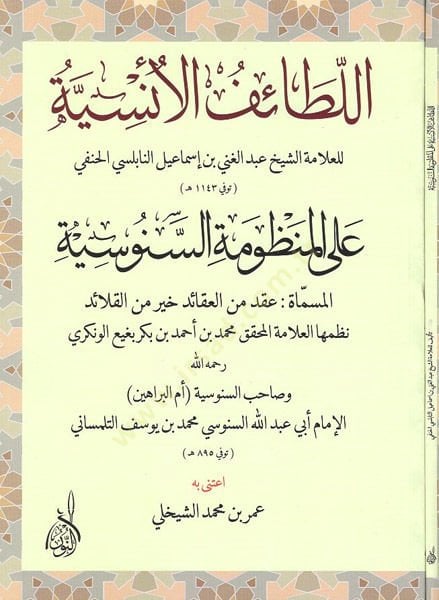 اللطائف الأنسية
للعلامة الشيخ عبد الغني بن إسماعيل النابلسي الحنفي
(توفي ١١٤٣ هـ)
على المنظومة السنوسية
المسماة : عقد من العقائد خير من القلائد
نظمها العلامة المحقق محمد بن أحمد بن بكر بغيع الونكري
رحمه الله
وصاحب السنوسية (أم البراهين)
الإمام أبي عبد الله السنوسي محمد بن يوسف التلمساني
(توفي ٨٩٥ هـ)
اعتنى به
عمر بن محمد الشيخلي
اللطائف الأنسية على المنظومة السنوسية